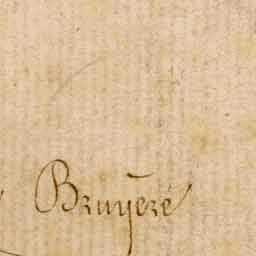 Bruÿeré